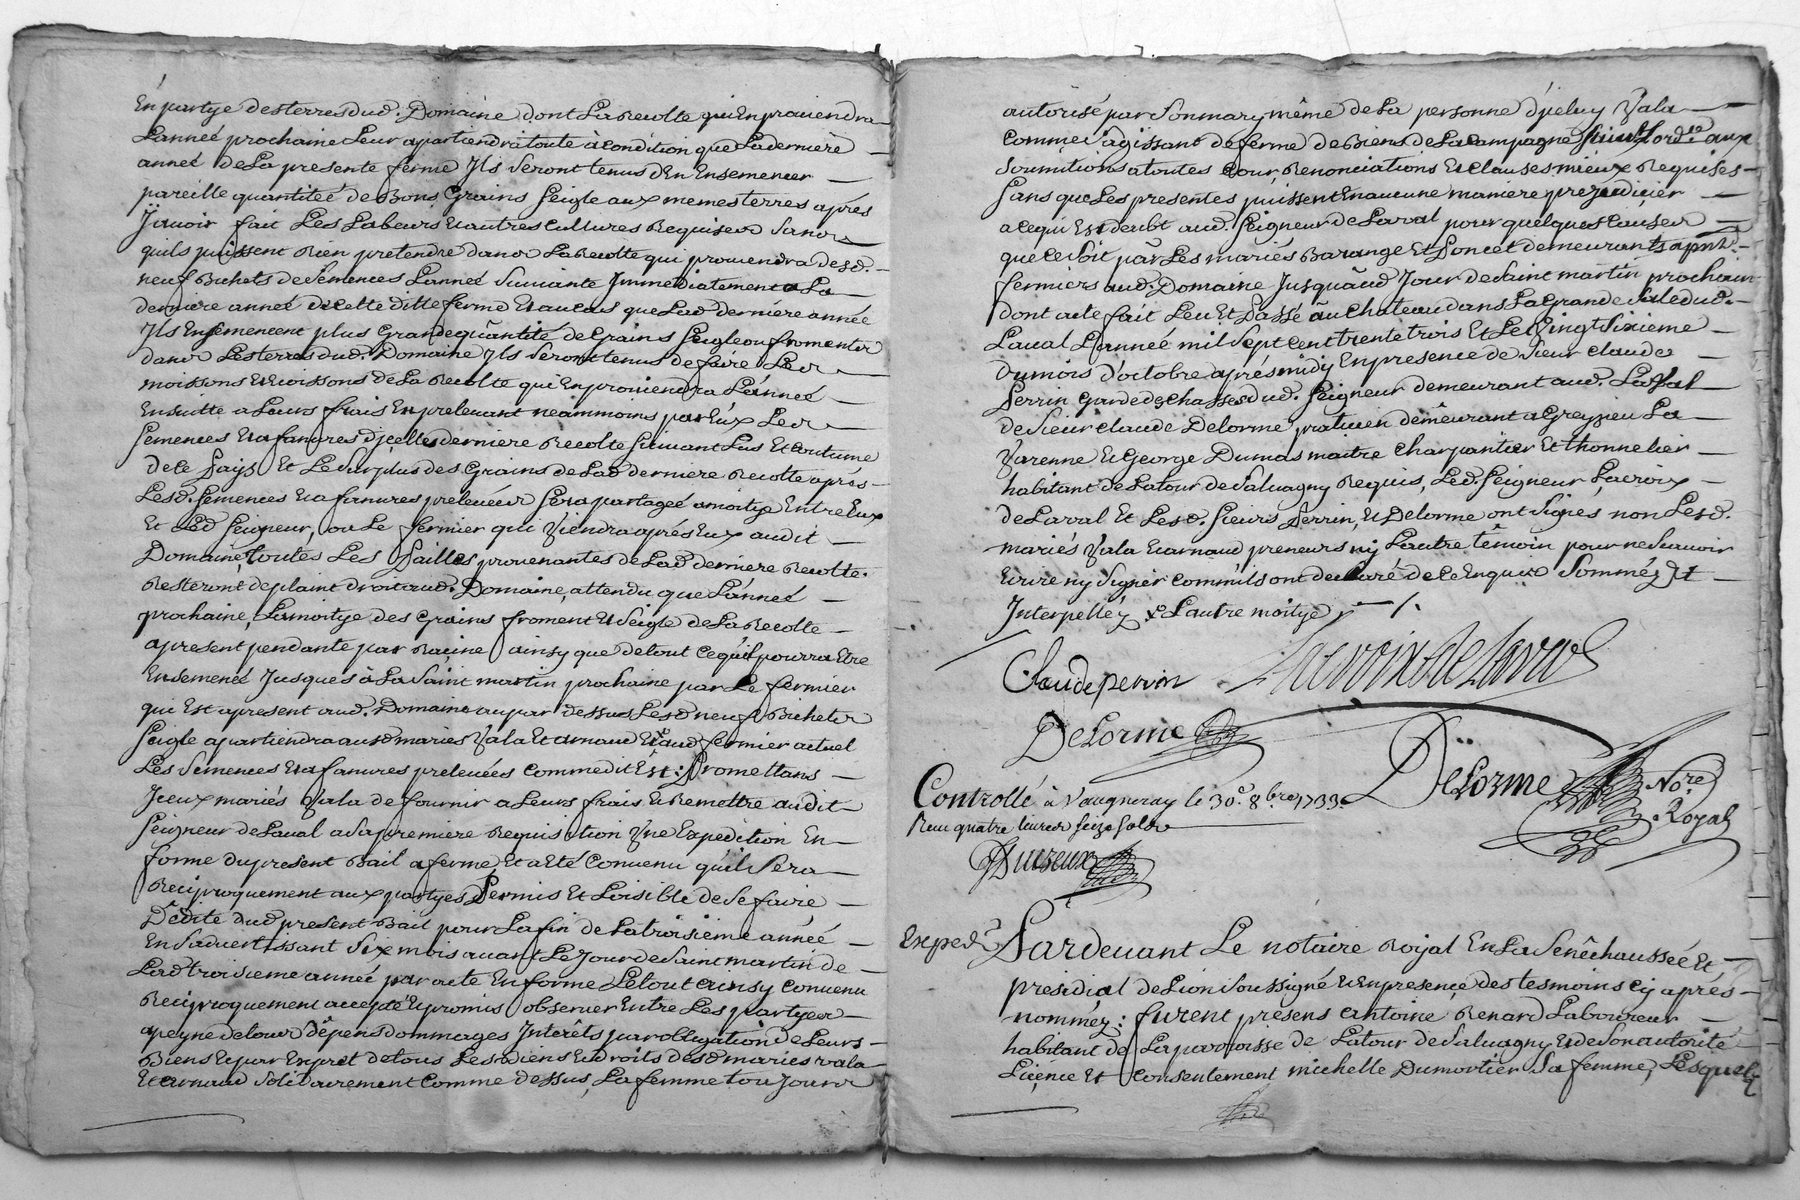 En partye des terres dud. Domaine dont La Recolte qui En proviendra
L'anneé prochaine Leur apartiendra toute à condition que La derniere
anneé de La presente ferme Ils Seront tenus d'En Ensemencer
pareille quantiteé de Bons Grains Seigle aux memes terres apres
y avoir fait Les Labeurs Et autres Cultures Requises Sans
quils puissent Rien pretendre dans La Recolte qui proviendra desd.
neuf Bichets de Semences L'année Suivante Immediatement a La
derniere année de cette ditte ferme Et au cas que Lad derniére année
Ils Ensemencent plus Grande quantité de Grains Seigle ou fromenter
dans Les terres dud. Domaine Ils Seront tenus de faire Les
moissons Et de La Recolte qui En proviendra L'anneé
Ensuitte a Leurs frais En prelevant neammoins par Eux Les
Semences Et afanures d'jcelle derniere Recolte Suivant L'us Et coutume
de ce Pays Et Le Surplus des Grains de Lad derniere Recolte aprés
Lesd. Semences Et afanures preleveés Sera partageé a moitye Entre Eux
Et Led Seigneur, ou Le fermier qui Viendra aprés Eux audit
Domaine, toutes Les Pailles provenantes de Lad derniere Recolte
Resteront de plaint droit aud. Domaine, attendu que L'anneé
prochaine, La moitye des Grains froment Et Seigle de La Recolte
apresent pendante par Racine ainsy que de tout ce qu'il pourra Etre
Ensemencé Jusques à La Saint martin prochaine par Le fermier
qui Est apresent aud. Domaine au par dessus Lesd neuf Bichets
Seigle apartiendra ausd mariés Vala Et arnaud Et aud fermier actuel
Les Semences Et afanures prelevées comme dit Est: Promettans
Iceux mariés Vala de fournir a Leurs frais Et Remettre audit
Seigneur de Laval a Sa premiere Requisition Vne Expedition En
forme du present Bail a ferme, Et a Eté Convenu qu'il Sera
Reciproquement aux partyes Permis Et Loisible de Se faire
Dédite dud present Bail pour La fin de La troisieme anneé
En S'advertissant Six mois avant Le Jour de Saint martin de
Lad troisieme année par acte En forme Le tout ainsy Convenu
Reciproquement accepté Et promis observer Entre Les partyes
a peyne de tous dêpens dommages Interêts par obligation de Leurs
Biens Et par Exprêt de tous Les Biens Et droits desd mariés Vala
Et arnaud Solidairement comme dessus, La femme toujours
autorisé par Son mary même de La personne d'jceluy Vala
comme S'agissant de ferme de Biens de La Campagne aux
Soumitions a toutes Cour, Renonciations Et Clauses mieux Requises
Sans que Les presentes puissent En aucune maniere prejudicier
a ce qui Est deubt aud. Seigneur de Laval pour quelques causes
que ce Soit par Les mariés Barange Et Poncet demeurants
fermiers aud. Domaine Jusqu'aud Jour de Saint martin prochain
Dont acte fait Leu Et Passé au Chateau dans La Grande Sale dud.
Laval L'anneé mil Sept cent trente trois Et Le Vingt Sixieme
Du mois d'octobre aprés midy En presence de Sieur Claude
Perrin Garde des Chasses dud. Seigneur demeurant aud. Laval
de Sieur claude Delorme praticien demeurant a Grezieu La
Varenne Et George Dumas maitre Charpantier Et thonnelier
habitant de Latour de Salvagny Requis, Led. Seigneur Lacroix
de Laval Et Lesd. Sieurs Perrin, Et Delorme ont Signés non Lesd.
mariés Vala Et arnaud preneurs ny L'autre têmoin pour ne Scavoir
Ecrire ny Signer comm'ils ont declaré de ce Enquis Sommés Et
Interpelléz x L'autre moitye
Claude perrin Lacroix de Laval
DeLorme
Delorme No.re
Royal
Controllé à Vaugneray le 30.e 8.bre 1733.
Recu quatre livres seize sols
Exped.
Pardevant Le notaire Royal En La Senêchaussée Et
presidial de Lion Soussigné Et En presence des tesmoins Cy aprés
nomméz: furent présens antoine Renard Laboureur
habitant de La parroisse de Latour de Salvagny Et de Son autorité
Licence Et Consentement michelle Dumortier Sa femme, Lesquels